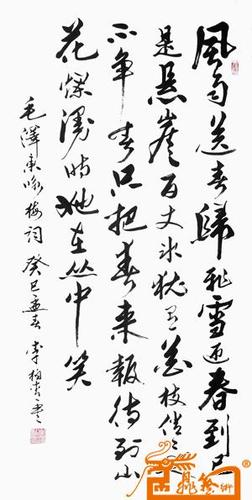 風雨送春歸飛雪迎春到已
是悬崖百丈冰犹有花枝俏俏也
不争春只把春来報待到山
花爛漫时她在丛中笑
毛澤東咏梅词癸巳孟春李